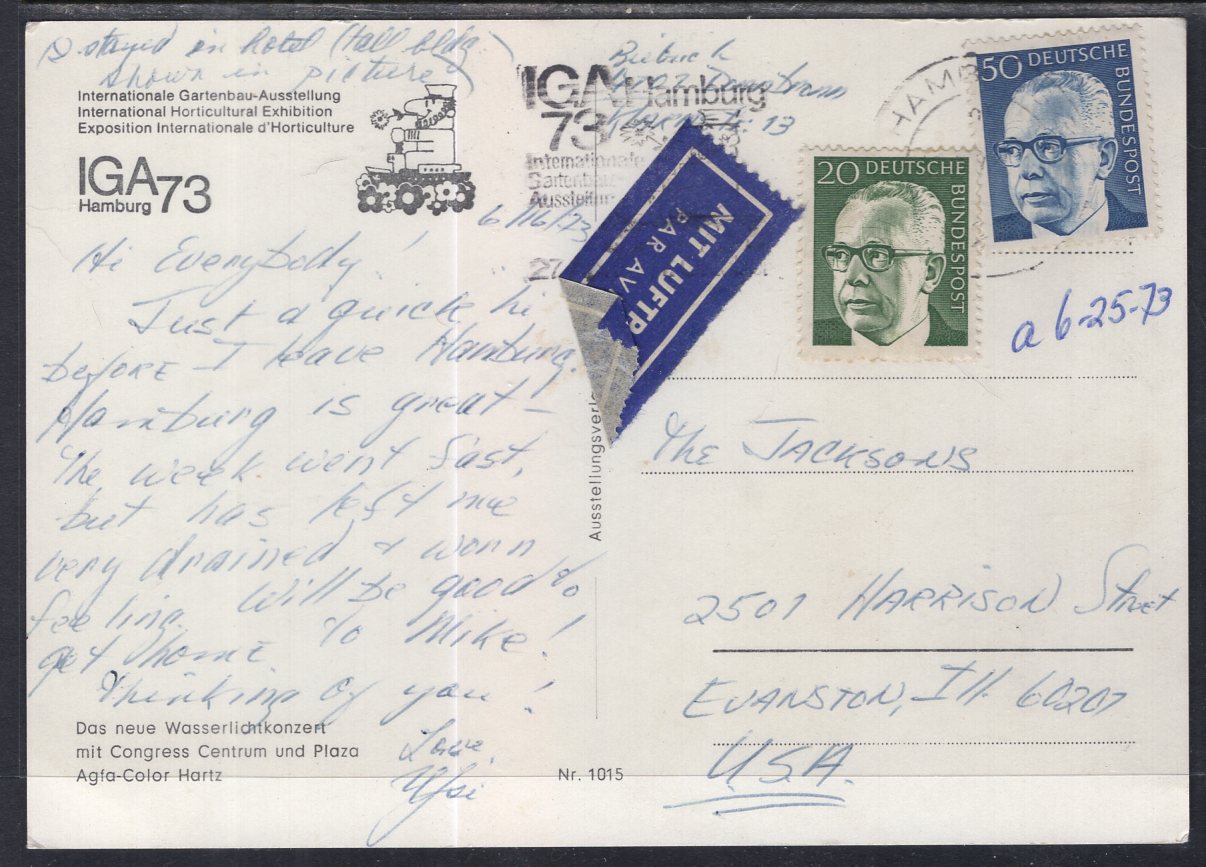 I stayed in hotel (tall bldg.)
shown in picture
Internationale Gartenbau-Ausstellung
International Horticultural Exhibition
Exposition Internationale d'Horticulture
IGA 73
Hamburg
6/16/73
Hi Everybody!
Just a quick hi
before I leave Hamburg.
Hamburg is great -
the week went fast,
but has left me
very drained & worn
feeling. Will be good to
get home. to Mike!
Thinking of you!
Love,
Das neue Wasserlichtkonzert
mit Congress Centrum und Plaza
Agfa-Color Hartz
Nr. 1015
Ausstellungsverla
IGA Hamburg
73
Internationale
Gartenbau-
Ausstellun
13
27
MIT LUFTP
PAR AV
HAMB
20 DEUTSCHE
BUNDESPOST
50 DEUTSCHE
BUNDESPOST
a 6-25-73
The JACKSONS
2501 HARRISON Street
EVANSTON, Ill. 60201
U.S.A.